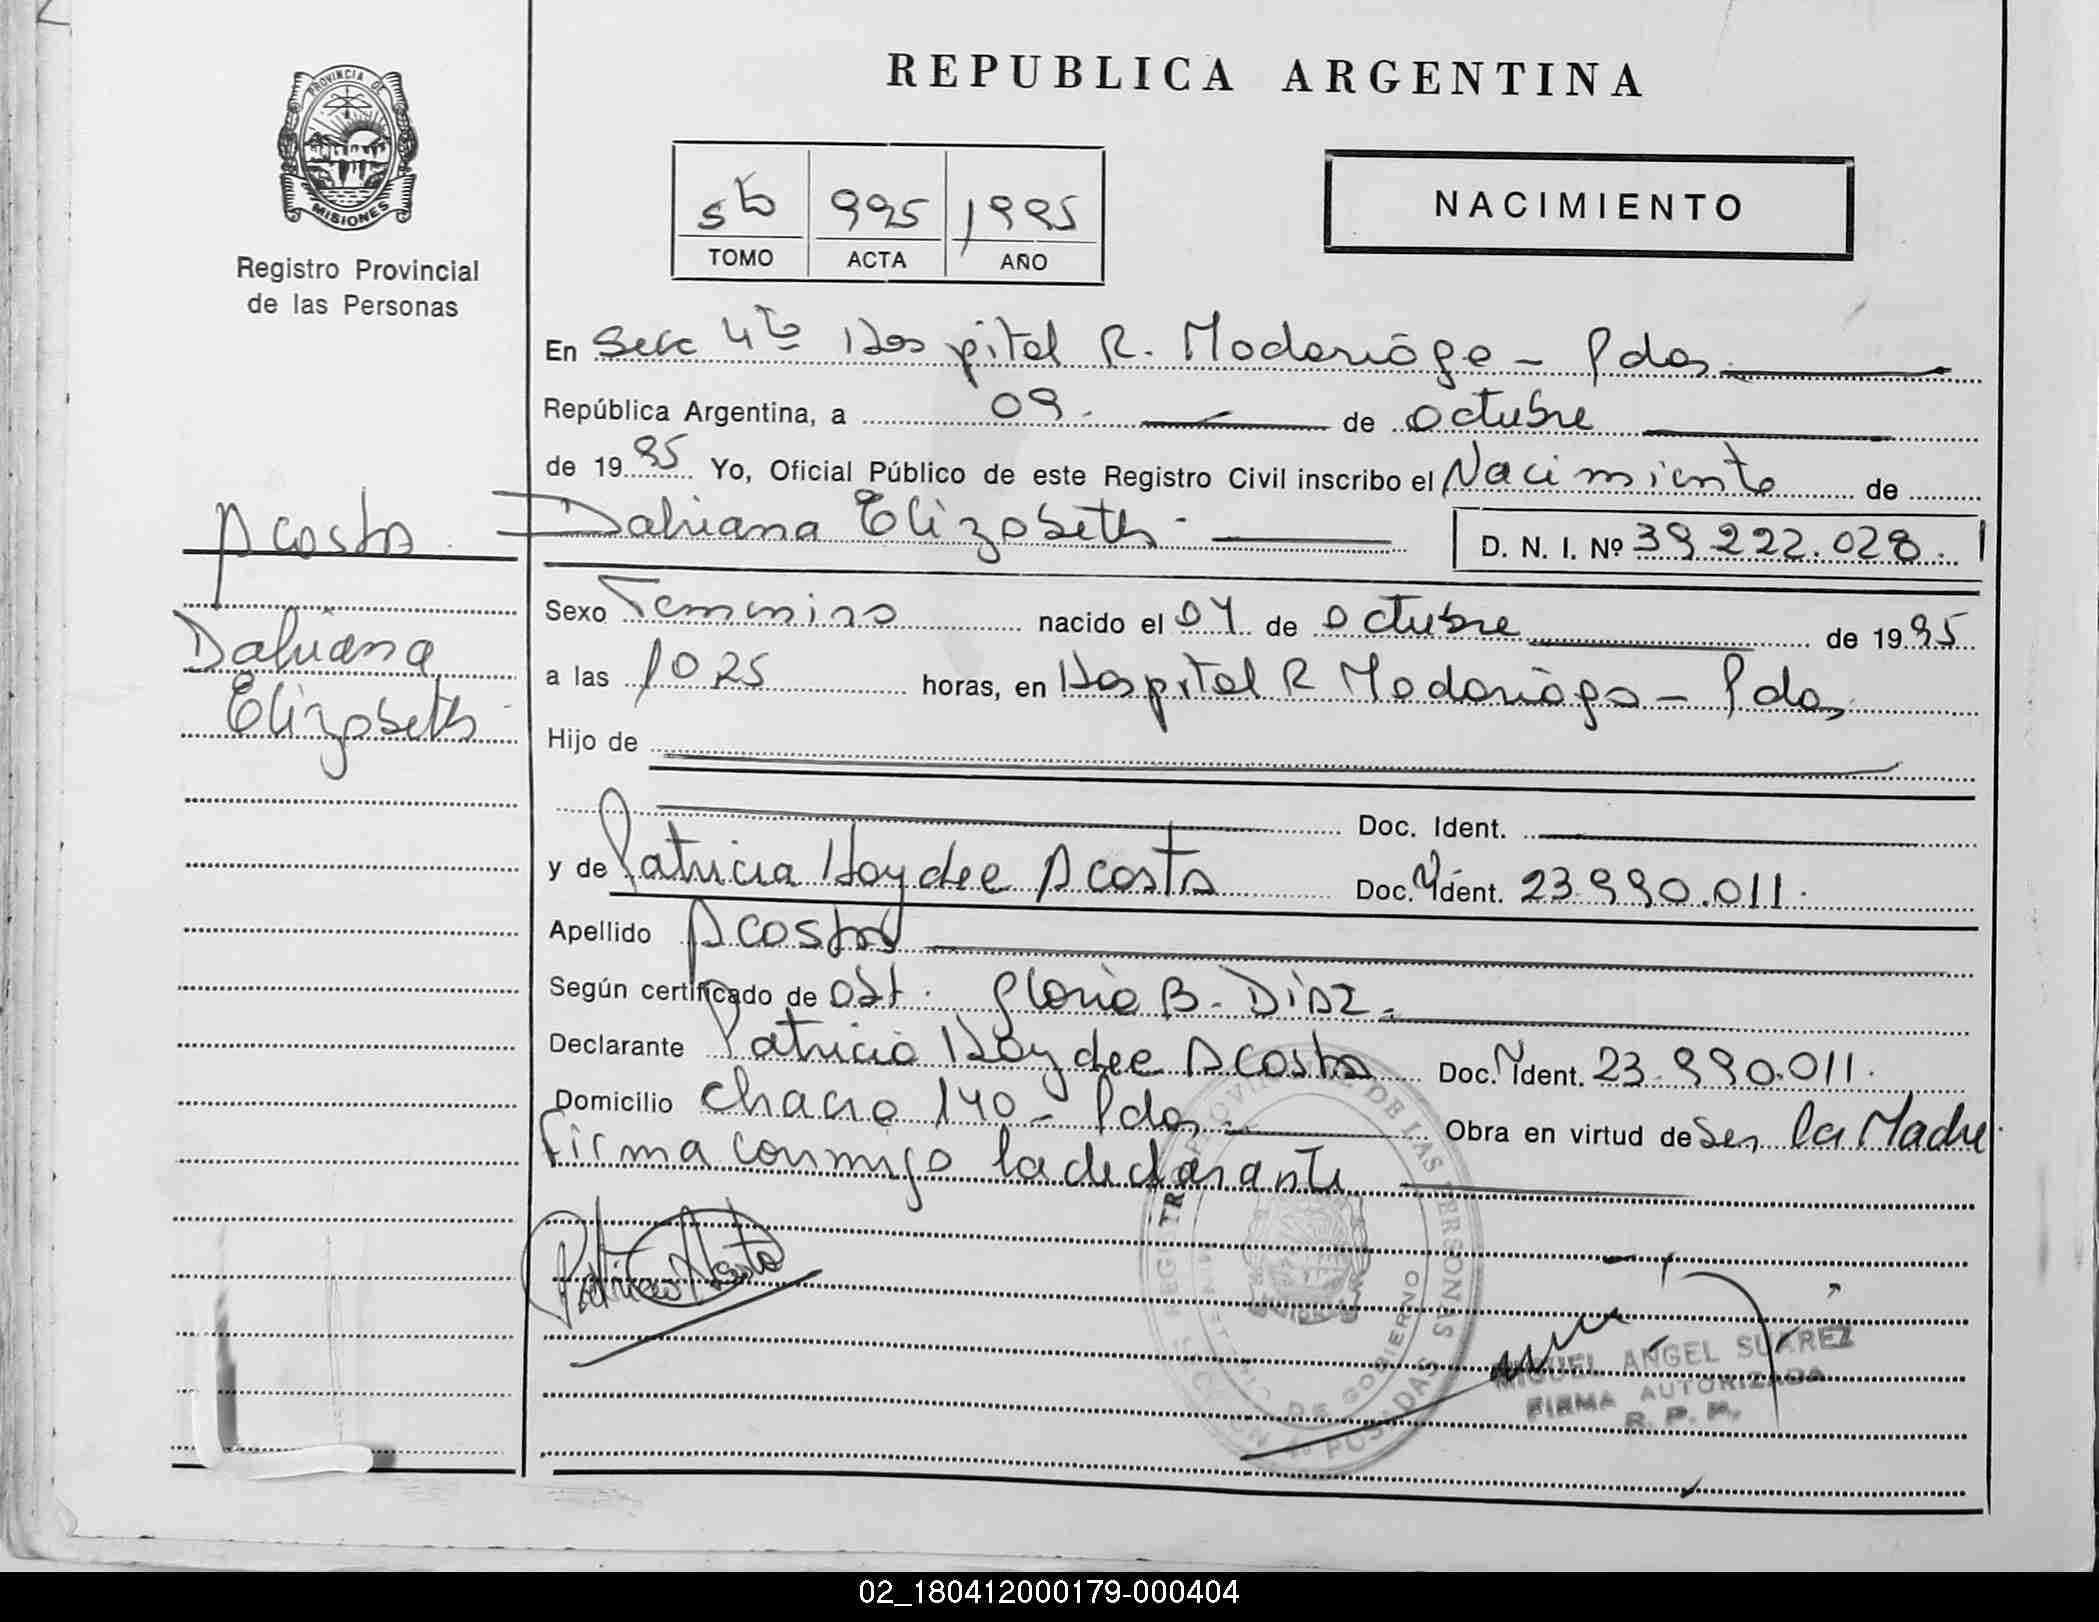 REPUBLICA ARGENTINA
PROVINCIA DE
MISIONES
Registro Provincial
de las Personas
5to 995 1995
TOMO ACTA AÑO
NACIMIENTO
En Secc 4ta Hospital R. Madariaga - Pdas
República Argentina, a 09 de octubre
de 1995 Yo, Oficial Público de este Registro Civil inscribo el Nacimiento de
Dahiana Elizabeth D. N. I. Nº 39.222.028.
Acosta
Dahiana
Elizabeth
Sexo Femenino nacido el 04 de octubre de 1995
a las 1025 horas, en Hospital R Madariaga - Pdas
Hijo de
Doc. Ident.
y de Patricia Haydee Acosta Doc. Ident. 23.990.011.
Apellido Acosta
Según certificado de Obst. Gloria B. Diaz
Declarante Patricia Haydee Acosta Doc. Ident. 23.990.011.
Domicilio chacra 140 - Pdas Obra en virtud de Ser la Madre
firma conmigo la declarante
Patricia Acosta
MIGUEL ANGEL SUAREZ
FIRMA AUTORIZADA
R. P. P.
02_180412000179-000404